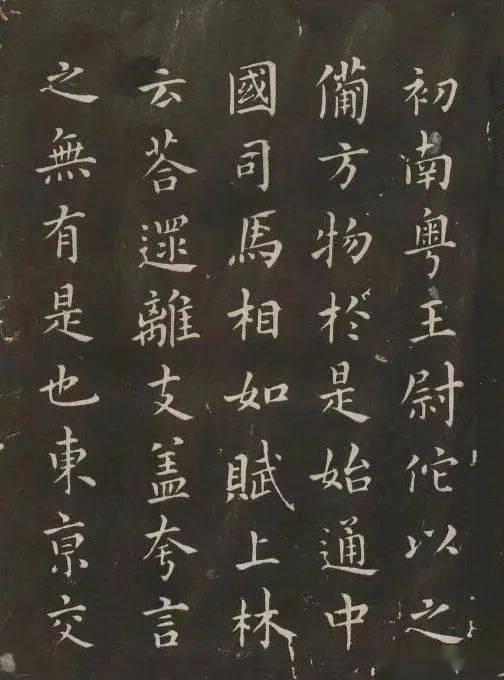 初南粤王尉佗以之
備方物於是始通中
國司馬相如賦上林
云荅遝離支盖夸言
之無有是也東亰交